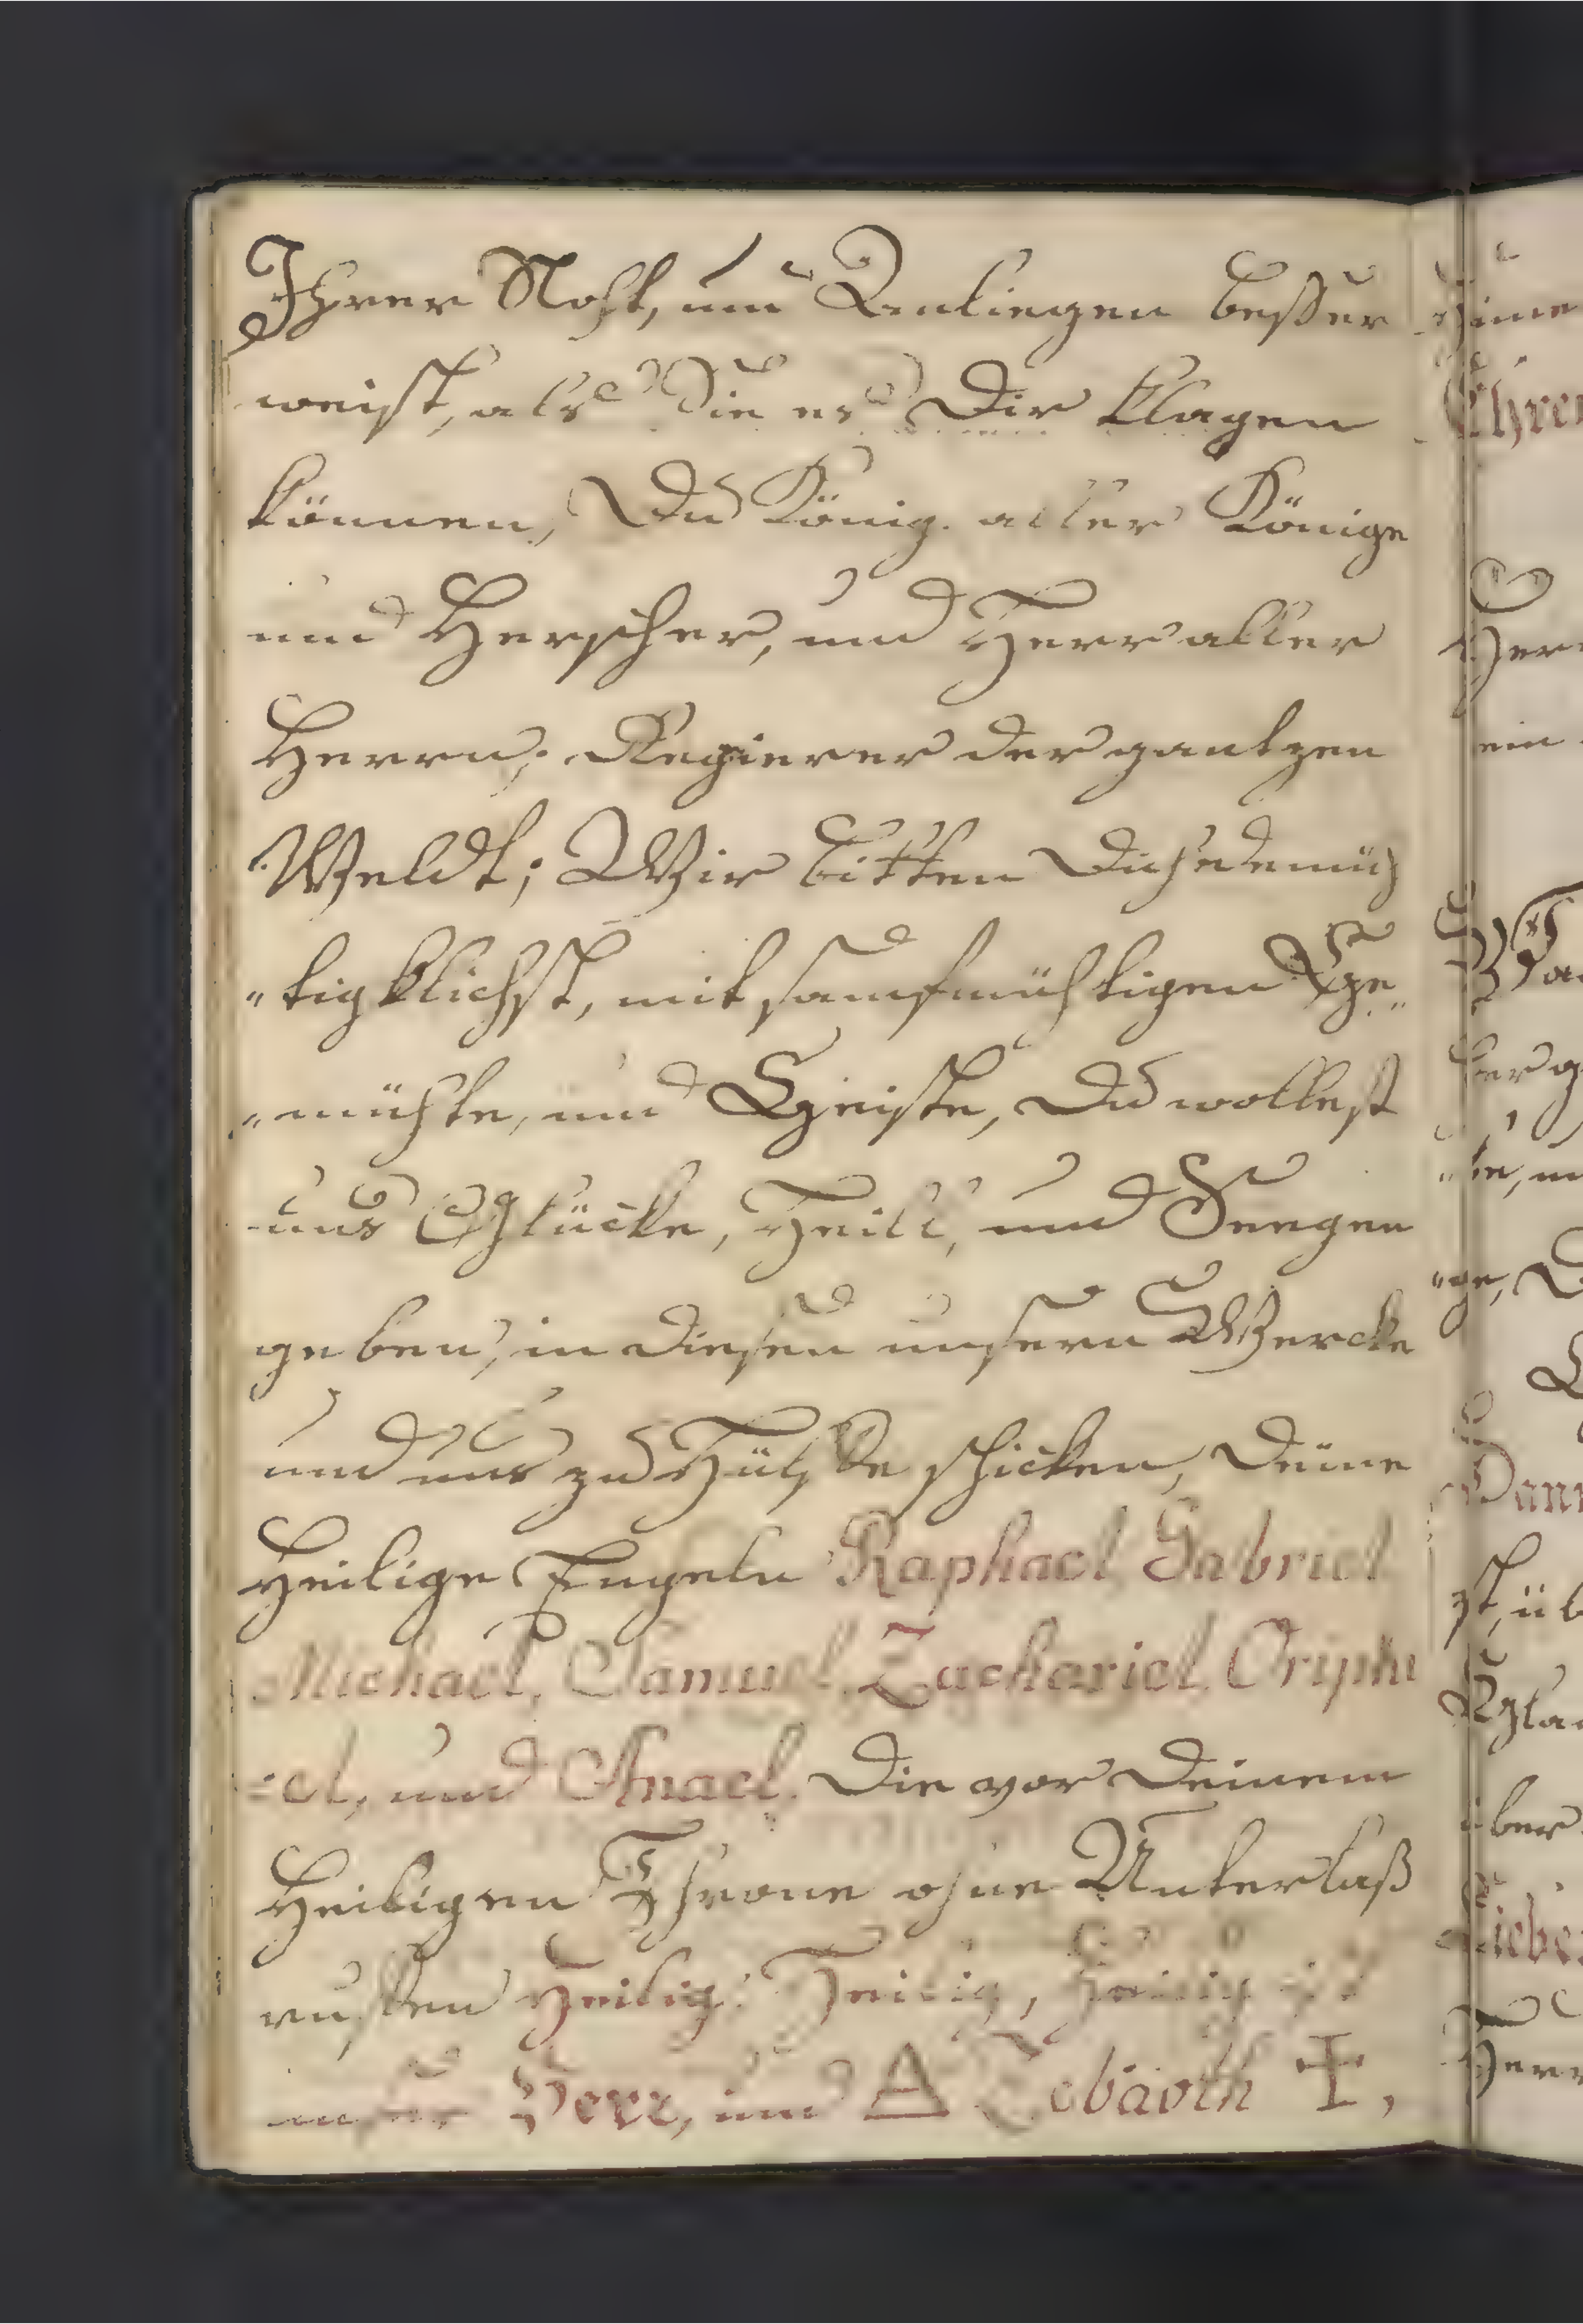 Ihrer Noht, und Anliegen beßer
weist, als Sie es Dir klagen
können, Du König aller Könige
und Herscher, und Herr aller
Herrn, Regierer der gantzen
Weldt; Wir bitten Dich demüh
"tigklichst, mit sanfmühtigen Ge"
"mühte, und Geiste, Du wollest
uns Glücke, Heill, und Seegen
geben, in diesen unsern Wercke
und uns zu Hülffe schicken, Deine
Heilige Engeln Raphael Gabriel
Michael, Samuel, Zachariel, Oriphi
=el, und Anael. Die vor Deinem
Heiligen Throne ohne Unterlaß
ruffen Heilig, Heilig, Heilig ist
unser Herr, und △ Zebaoth ✝,
Ehren
Herr
ein
ge,
st, üb
über
Liebe
Herr